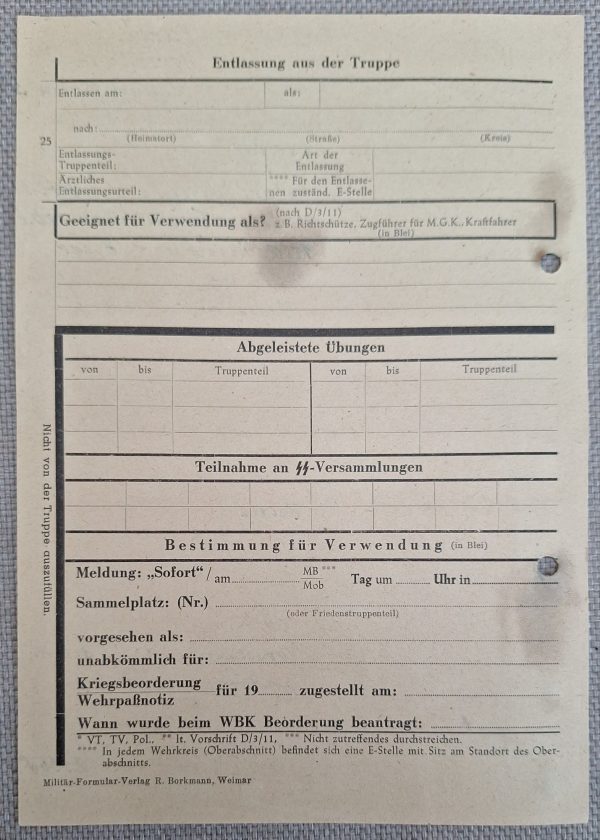 Entlassung aus der Truppe
Entlassen am: als:
nach:
25 (Heimatort) (Straße) (Kreis)
Entlassungs-
Truppenteil:
Art der
Entlassung
Ärztliches
Entlassungsurteil:
**** Für den Entlasse-
nen zuständ. E-Stelle
Geeignet für Verwendung als? (nach D/3/11)
z. B. Richtschütze, Zugführer für M.G.K., Kraftfahrer
(in Blei)
Abgeleistete Übungen
von bis Truppenteil von bis Truppenteil
Teilnahme an ᛋᛋ-Versammlungen
Bestimmung für Verwendung (in Blei)
Meldung: „Sofort“ / am MB ***
Mob Tag um Uhr in
Sammelplatz: (Nr.)
(oder Friedenstruppenteil)
vorgesehen als:
unabkömmlich für:
Kriegsbeorderung
Wehrpaßnotiz für 19 zugestellt am:
Wann wurde beim WBK Beorderung beantragt:
* VT, TV, Pol., ** lt. Vorschrift D/3/11, *** Nicht zutreffendes durchstreichen.
**** In jedem Wehrkreis (Oberabschnitt) befindet sich eine E-Stelle mit Sitz am Standort des Ober-
abschnitts.
Nicht von der Truppe auszufüllen.
Militär-Formular-Verlag R. Borkmann, Weimar